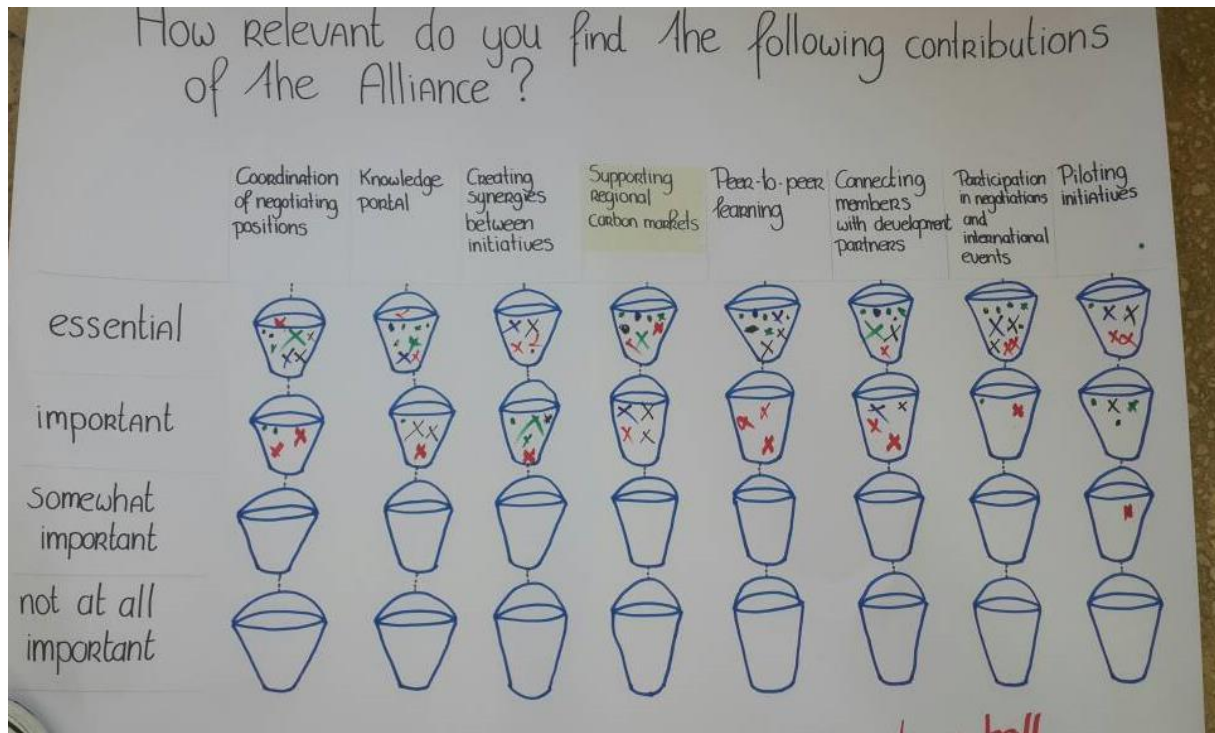 How Relevant do you find the following contributions
of the Alliance ?
Coordination
of negotiating
positions
Knowledge
portal
Creating
synergies
between
initiatives
Supporting
Regional
Carbon markets
Peer-to-peer
learning
Connecting
members
with development
partners
Participation
in negotiations
and
international
events
Piloting
initiatives
essential
important
somewhat
important
not at all
important